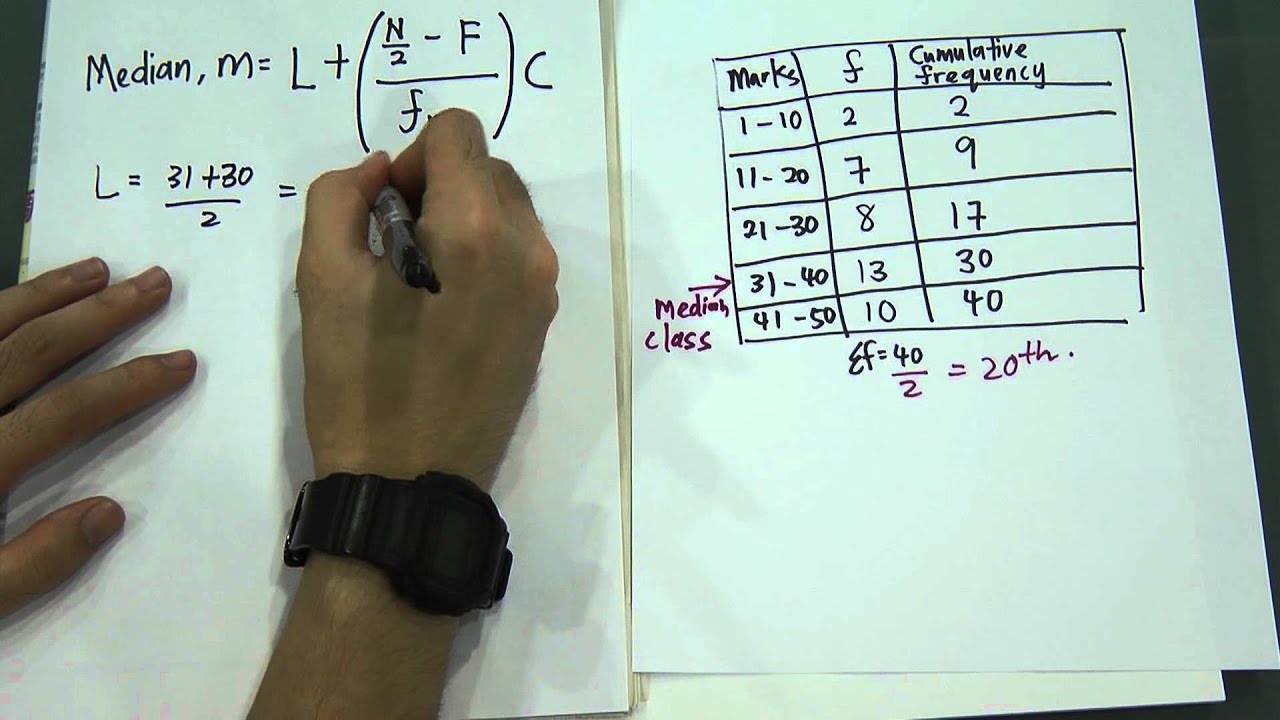 Median, m = L + ( (N/2 - F) / f ) C
L = (31+30) / 2 =
Marks f Cumulative frequency
1-10 2 2
11-20 7 9
21-30 8 17
31-40 13 30
41-50 10 40
Median class
Σf = 40/2 = 20th.